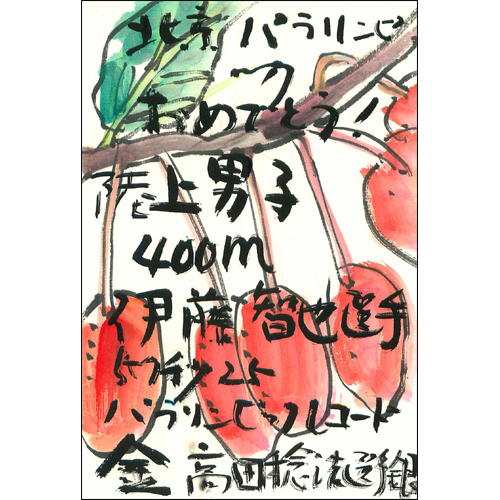 北京パラリンピ
ック
おめでとう!
陸上男子
400m
伊藤智也選手
57秒25
パラリンピックレコード
金 高田稔浩選 銀